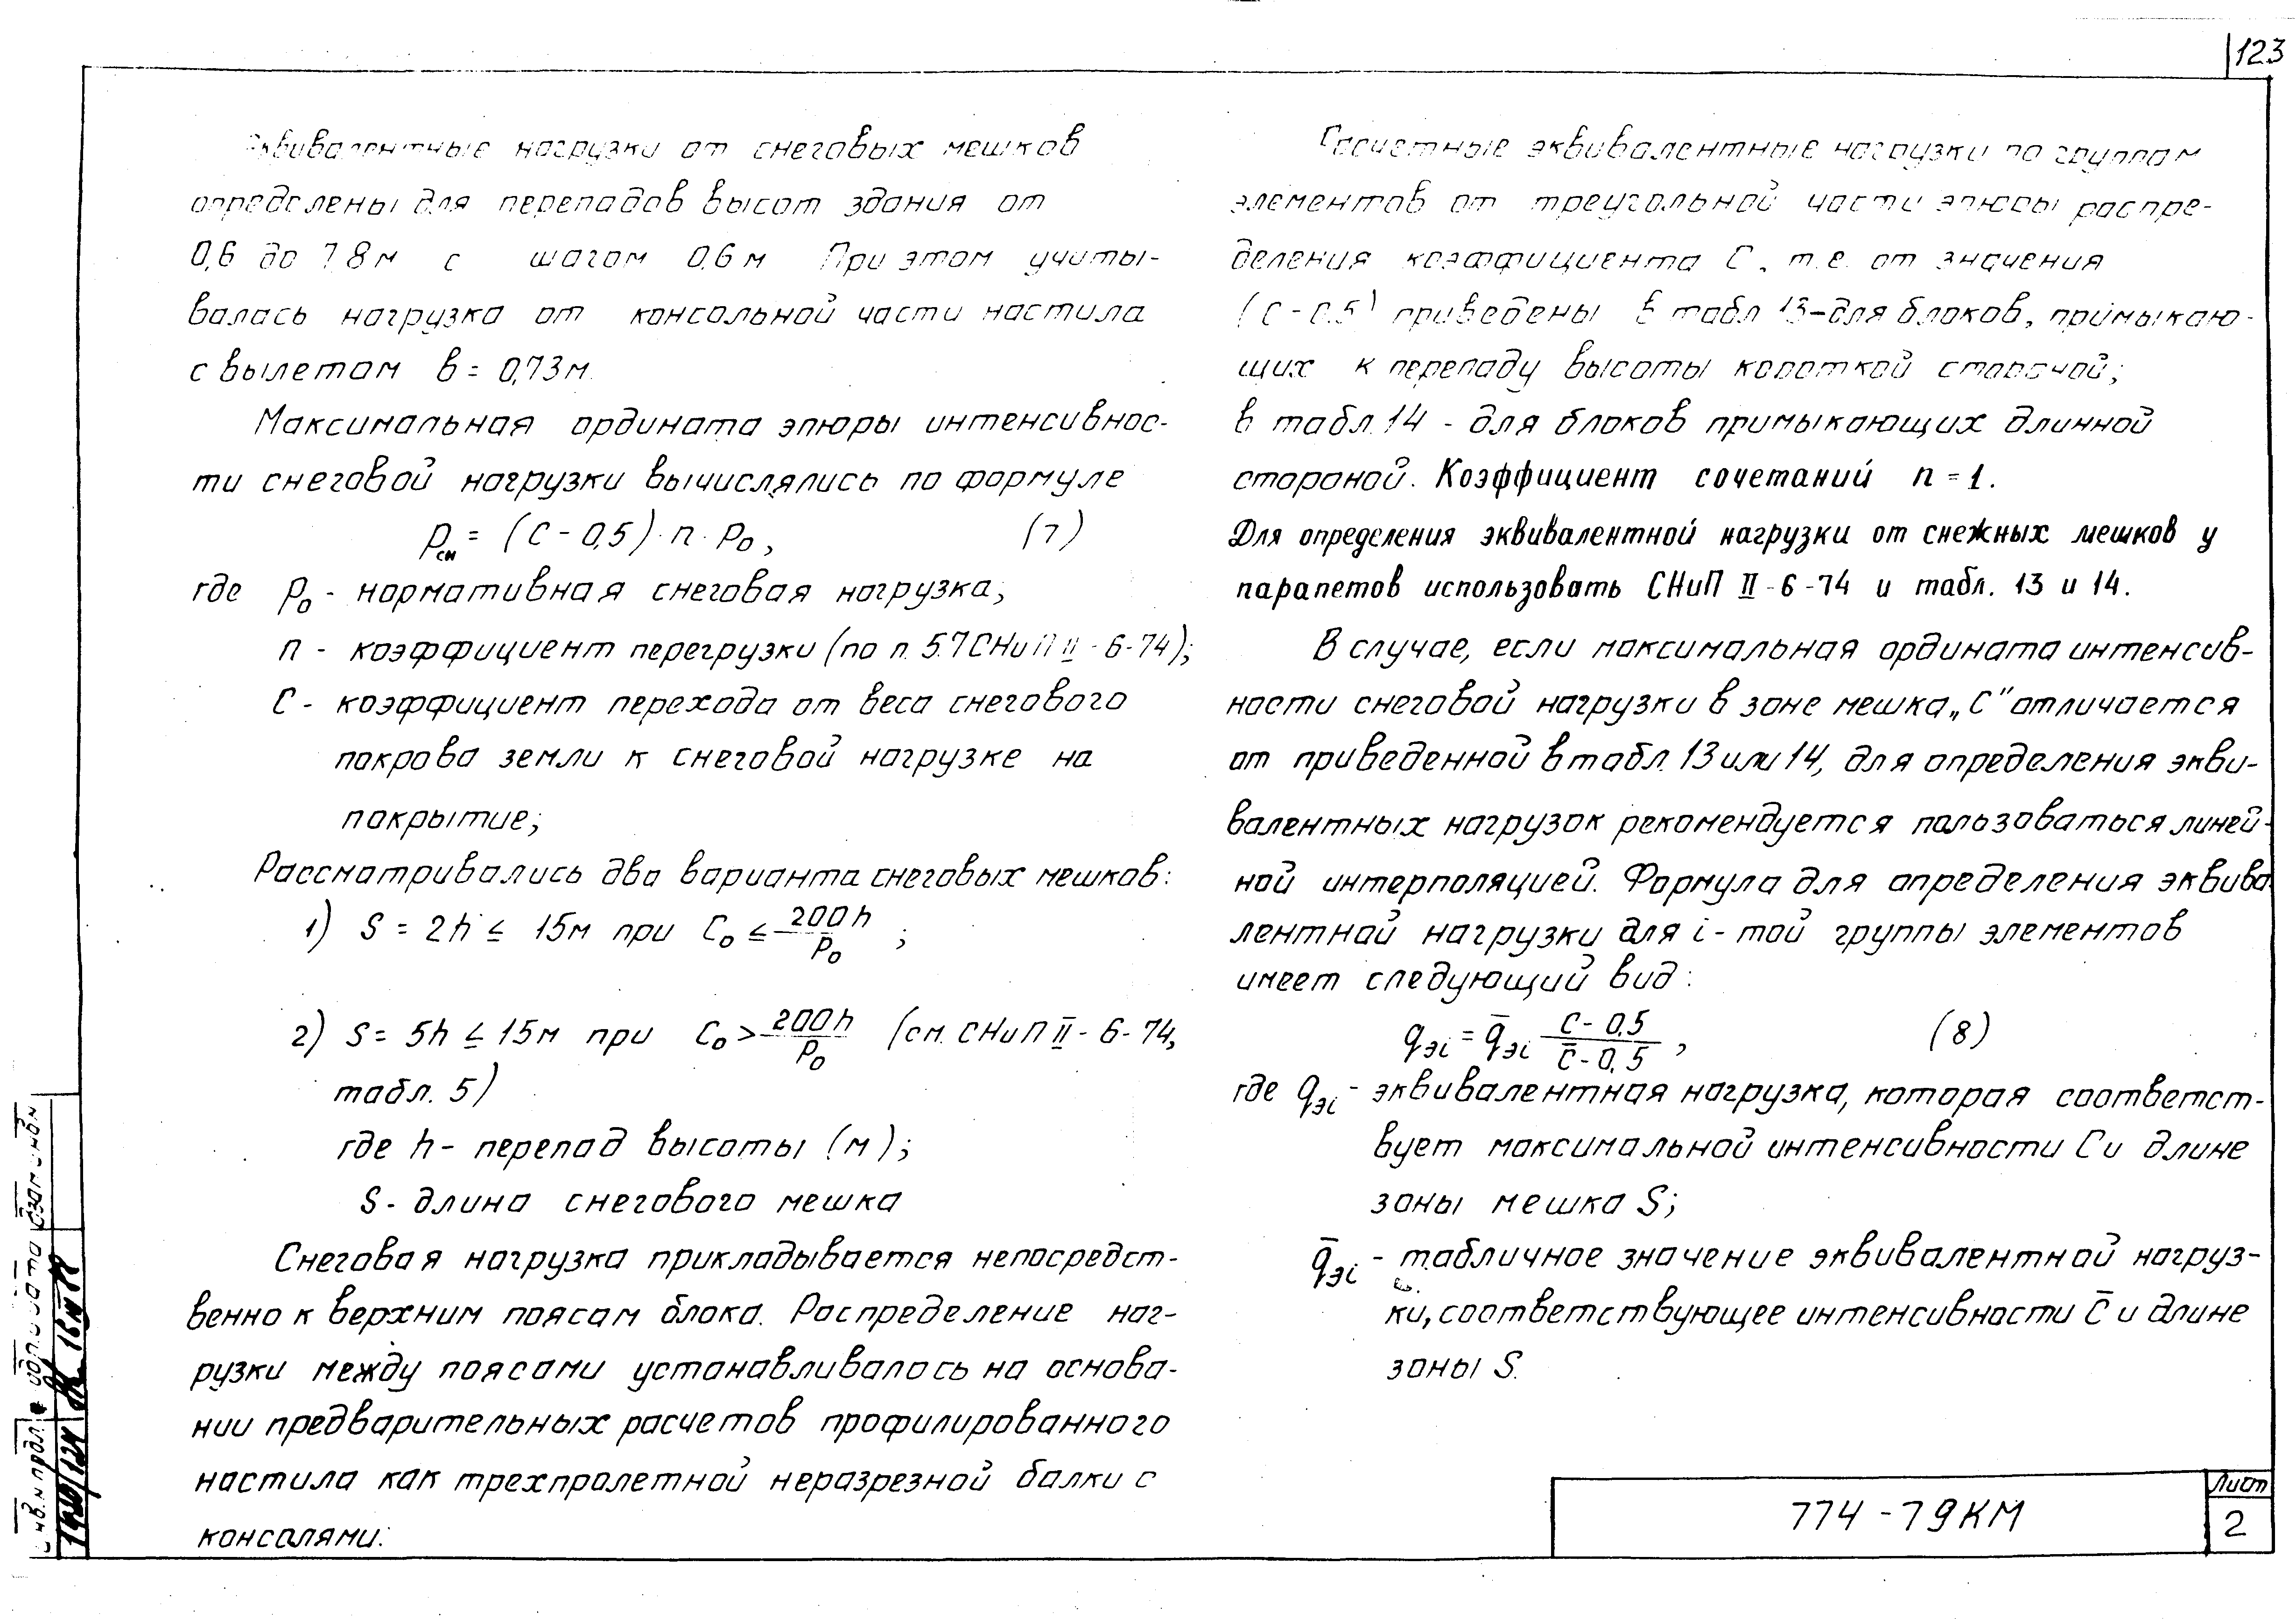 123
Эквивалентные нагрузки от снеговых мешков
определены для перепадов высот здания от
0,6 до 7.8 м с шагом 0.6 м При этом учиты-
валась нагрузка от консольной части настила
с вылетом в = 0,73 м.
Максимальная ордината эпюры интенсивнос-
ти снеговой нагрузки вычислялись по формуле
Pсн = (С - 0,5) · п · Po, (7)
где Po - нормативная снеговая нагрузка;
п - коэффициент перегрузки (по п. 5.7 СНиП II - 6-74);
С - коэффициент перехода от веса снегового
покрова земли к снеговой нагрузке на
покрытие;
Рассматривались два варианта снеговых мешков:
1) S = 2h ≤ 15м при Со ≤ 200h/Po ;
2) S = 5h ≤ 15м при Со > 200h/Po (см. СНиП II - 6-74,
табл. 5)
где h - перепад высоты (м);
S - длина снегового мешка
Снеговая нагрузка прикладывается непосредст-
венно к верхним поясам блока. Распределение наг-
рузки между поясами устанавливалось на основа-
нии предварительных расчетов профилированного
настила как трехпролетной неразрезной балки с
консолями.
Расчетные эквивалентные нагрузки по группам
элементов от треугольной части эпюры распре-
деления коэффициента С, т.е. от значения
(С - 0.5) приведены в табл 13 - для блоков, примыкаю-
щих к перепаду высоты короткой стороной;
в табл. 14 - для блоков примыкающих длинной
стороной. Коэффициент сочетаний п = 1.
Для определения эквивалентной нагрузки от снежных мешков у
парапетов использовать СНиП II - 6 - 74 и табл. 13 и 14.
В случае, если максимальная ордината интенсив-
ности снеговой нагрузки в зоне мешка „С" отличается
от приведенной в табл. 13 или 14, для определения экви-
валентных нагрузок рекомендуется пользоваться линей-
ной интерполяцией. Формула для определения эквива-
лентной нагрузки для i - той группы элементов
имеет следующий вид:
qэi = q̄эi (С - 0.5)/(С̄ - 0,5) , (8)
где qэi - эквивалентная нагрузка, которая соответст-
вует максимальной интенсивности С и длине
зоны мешка S;
q̄эi - табличное значение эквивалентной нагруз-
ки, соответствующее интенсивности С̄ и длине
зоны S.
774 - 79КМ
Лист
2